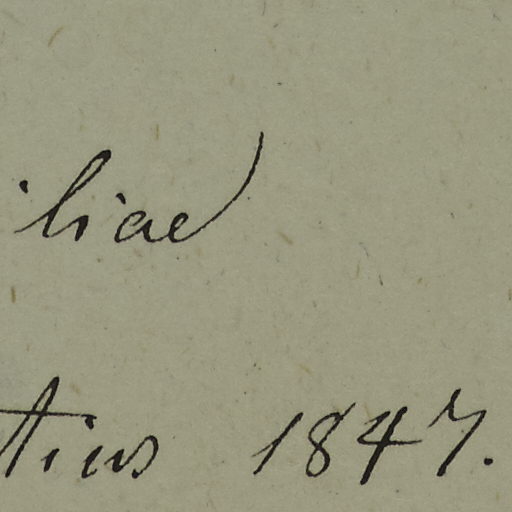 iliae
tius 1847.